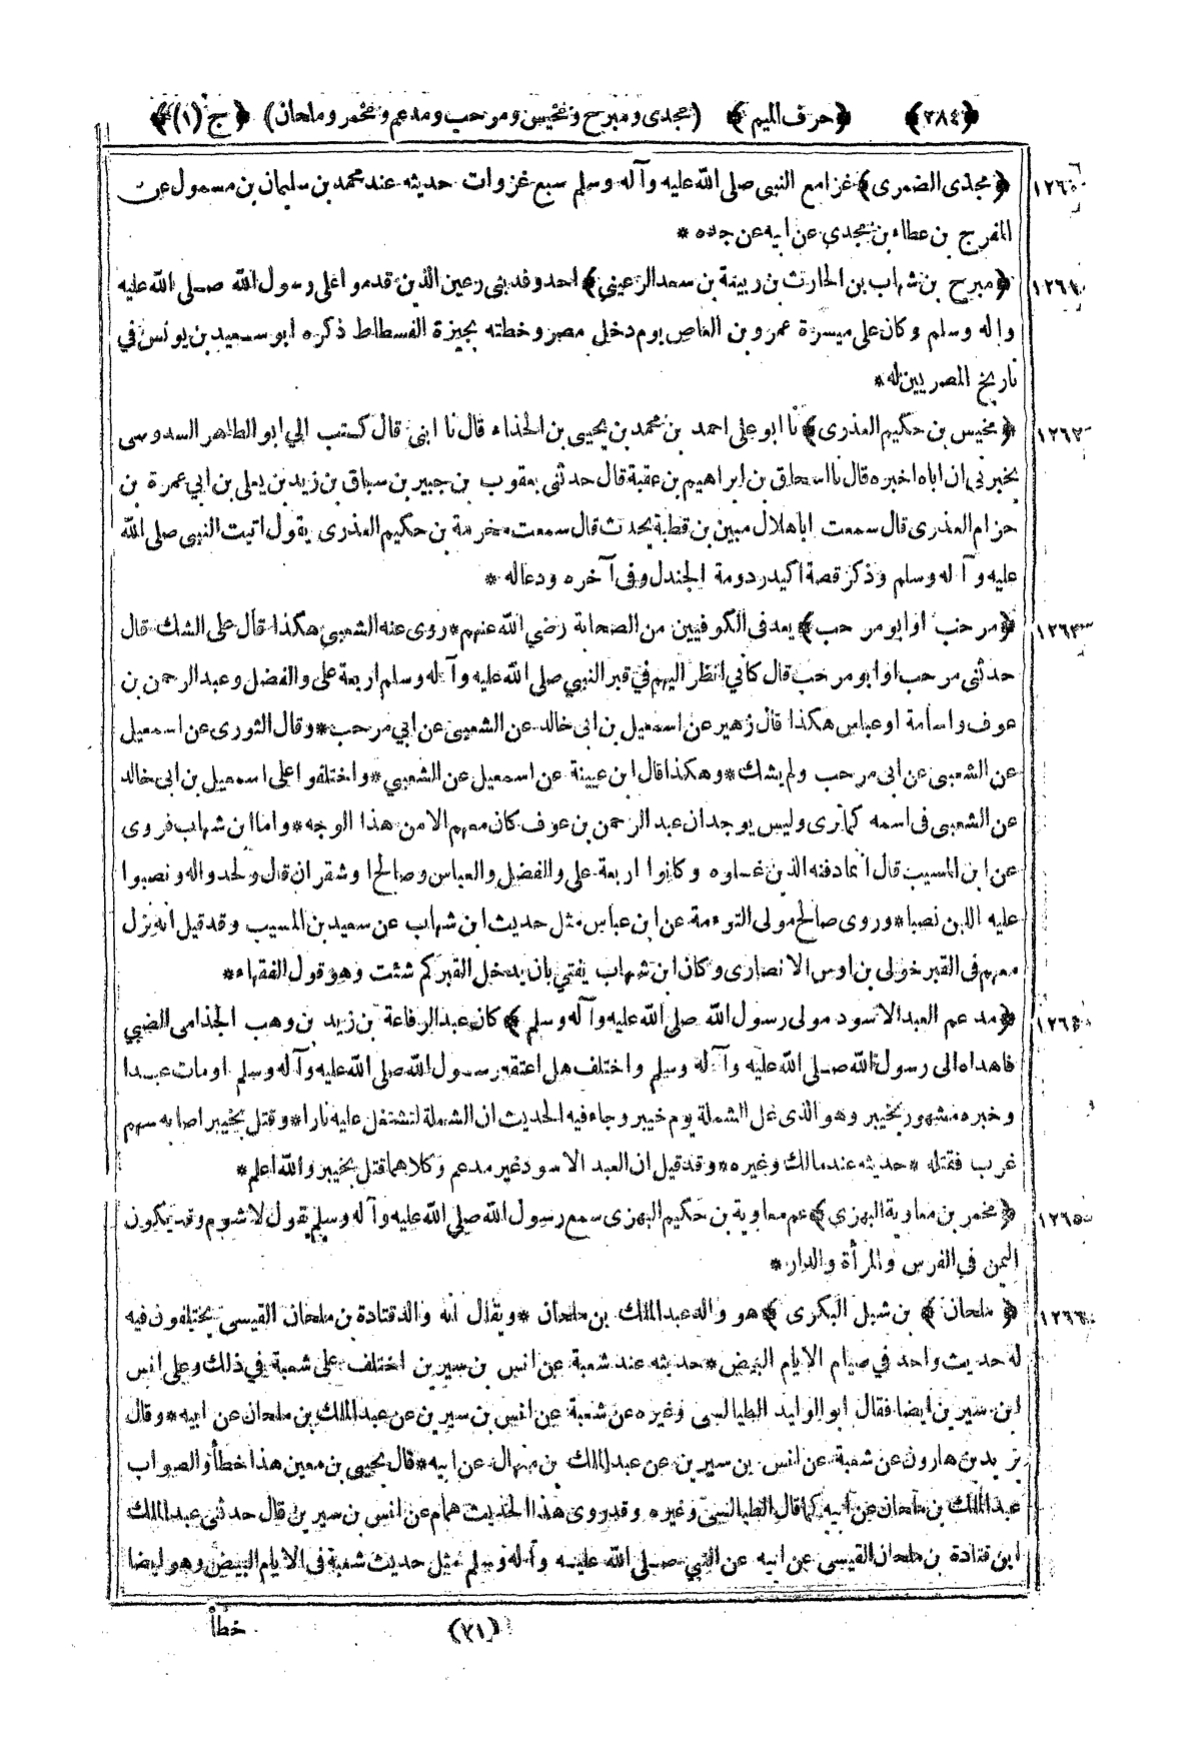 ﴿٢٨٤﴾ ﴿حرف الميم﴾ (مجدى ومبرح ومخيس ومرحب ومدعم ومخمر وملحان) ﴿ج (١)﴾
١٢٦٠ ﴿مجدى الضمرى﴾ غزا مع النبى صلى الله عليه وآله وسلم سبع غزوات حديثه عند محمد بن سليمان بن مسمول عن
المفرج بن عطاء بن مجدى عن ابيه عن جده *
١٢٦١ ﴿مبرح بن شهاب بن الحارث بن ربيعة بن سعد الرعينى﴾ احد وفد بنى رعين الذين قدموا على رسول الله صلى الله عليه
وآله وسلم وكان على ميسرة عمرو بن العاص يوم دخل مصر وخطته بجيزة الفسطاط ذكره ابو سعيد بن يونس في
تاريخ المصريين له *
١٢٦٢ ﴿مخيس بن حكيم العذرى﴾ نا ابو على احمد بن محمد بن يحيى بن الحذاء قال نا ابى قال كتب الي ابو الطاهر السدوسى
يخبرنى ان اباه اخبره قال نا اسحاق بن ابراهيم بن عقبة قال حدثنى يعقوب بن جبير بن سباق بن زيد بن يعلى بن ابي عمرة بن
حزام العذرى قال سمعت اباهلال مبين بن قطبة يحدث قال سمعت مخرمة بن حكيم العذرى يقول اتيت النبى صلى الله
عليه وآله وسلم وذكر قصة اكيدر دومة الجندل وفى آخره ودعاله *
١٢٦٣ ﴿مرحب او ابو مرحب﴾ يعد فى الكوفيين من الصحابة رضي الله عنهم * روى عنه الشعبى هكذا قال على الشك قال
حدثنى مرحب او ابو مرحب قال كأني انظر اليهم في قبر النبي صلى الله عليه وآله وسلم اربعة على والفضل وعبد الرحمن بن
عوف واسامة او عباس هكذا قال زهير عن اسمعيل بن ابى خالد عن الشعبى عن ابي مرحب * وقال الثورى عن اسمعيل
عن الشعبى عن ابى مرحب ولم يشك * وهكذا قال ابن عيينة عن اسمعيل عن الشعبي * واختلفوا على اسمعيل بن ابى خالد
عن الشعبى فى اسمه كما ترى وليس يوجد ان عبد الرحمن بن عوف كان معهم الا من هذا الوجه * واما ابن شهاب فروى
عن ابن المسيب قال انما دفنه الذين غسلوه وكانوا اربعة على والفضل والعباس وصالحا وشقران قال ولحدوا له ونصبوا
عليه اللبن نصبا * وروى صالح مولى التوءمة عن ابن عباس مثل حديث ابن شهاب عن سعيد بن المسيب وقد قيل انه نزل
معهم فى القبر خولى بن اوس الانصارى وكان ابن شهاب يفتي بان يدخل القبر كم شئت وهو قول الفقهاء *
١٢٦٤ ﴿مدعم العبد الاسود مولى رسول الله صلى الله عليه وآله وسلم﴾ كان عبد الرفاعة بن زيد بن وهب الجذامى الضبي
فاهداه الى رسول الله صلى الله عليه وآله وسلم واختلف هل اعتقه رسول الله صلى الله عليه وآله وسلم او مات عبدا
وخبره مشهور بخيبر وهو الذى غل الشملة يوم خيبر وجاء فيه الحديث ان الشملة لتشتعل عليه نارا * وقتل بخيبر اصابه سهم
غرب فقتله * حديثه عند مالك وغيره * وقد قيل ان العبد الاسود غير مدعم وكلاهما قتل بخيبر والله اعلم *
١٢٦٥ ﴿مخمر بن معاوية البهزي﴾ عم معاوية بن حكيم البهزى سمع رسول الله صلى الله عليه وآله وسلم يقول لا شوم وقد يكون
اليمن في الفرس والمرأة والدار *
١٢٦٦ ﴿ملحان﴾ بن شبل البكرى﴾ هو والد عبد الملك بن ملحان * ويقال انه والد قتادة بن ملحان القيسى يختلفون فيه
له حديث واحد في صيام الايام البيض * حديثه عند شعبة عن انس بن سيرين اختلف على شعبة في ذلك وعلى انس
ابن سيرين ايضا فقال ابو الوليد الطيالسى وغيره عن شعبة عن انس بن سيرين عن عبد الملك بن ملحان عن ابيه * وقال
يزيد بن هارون عن شعبة عن انس بن سيرين عن عبد الملك بن منهال عن ابيه * قال يحيى بن معين هذا خطأ والصواب
عبد الملك بن ملحان عن ابيه كما قال الطيالسى وغيره وقد روى هذا الحديث همام عن انس بن سيرين قال حدثنى عبد الملك
ابن قتادة بن ملحان القيسى عن ابيه عن النبي صلى الله عليه وآله وسلم مثل حديث شعبة فى الايام البيض وهو ايضا
(٣١) خطأ